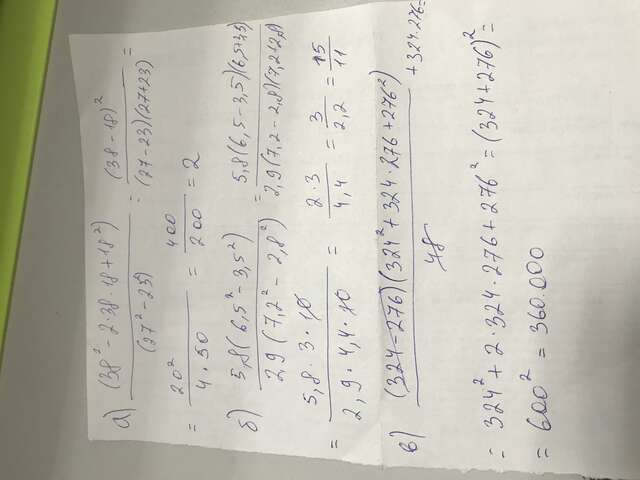 а) (38² - 2·38·18 + 18²) / (27² - 23²) = (38 - 18)² / (27 - 23)(27 + 23) =
= 20² / 4 · 50 = 400 / 200 = 2
б) 5,8(6,5² - 3,5²) / 2,9(7,2² - 2,8²) = 5,8(6,5 - 3,5)(6,5+3,5) / 2,9(7,2 - 2,8)(7,2+2,8)
= 5,8 · 3 · 10 / 2,9 · 4,4 · 10 = 2·3 / 4,4 = 3 / 2,2 = 15 / 11
в) (324 - 276)(324² + 324·276 + 276²) / 48 + 324·276=
= 324² + 2·324·276 + 276² = (324+276)² =
= 600² = 360.000